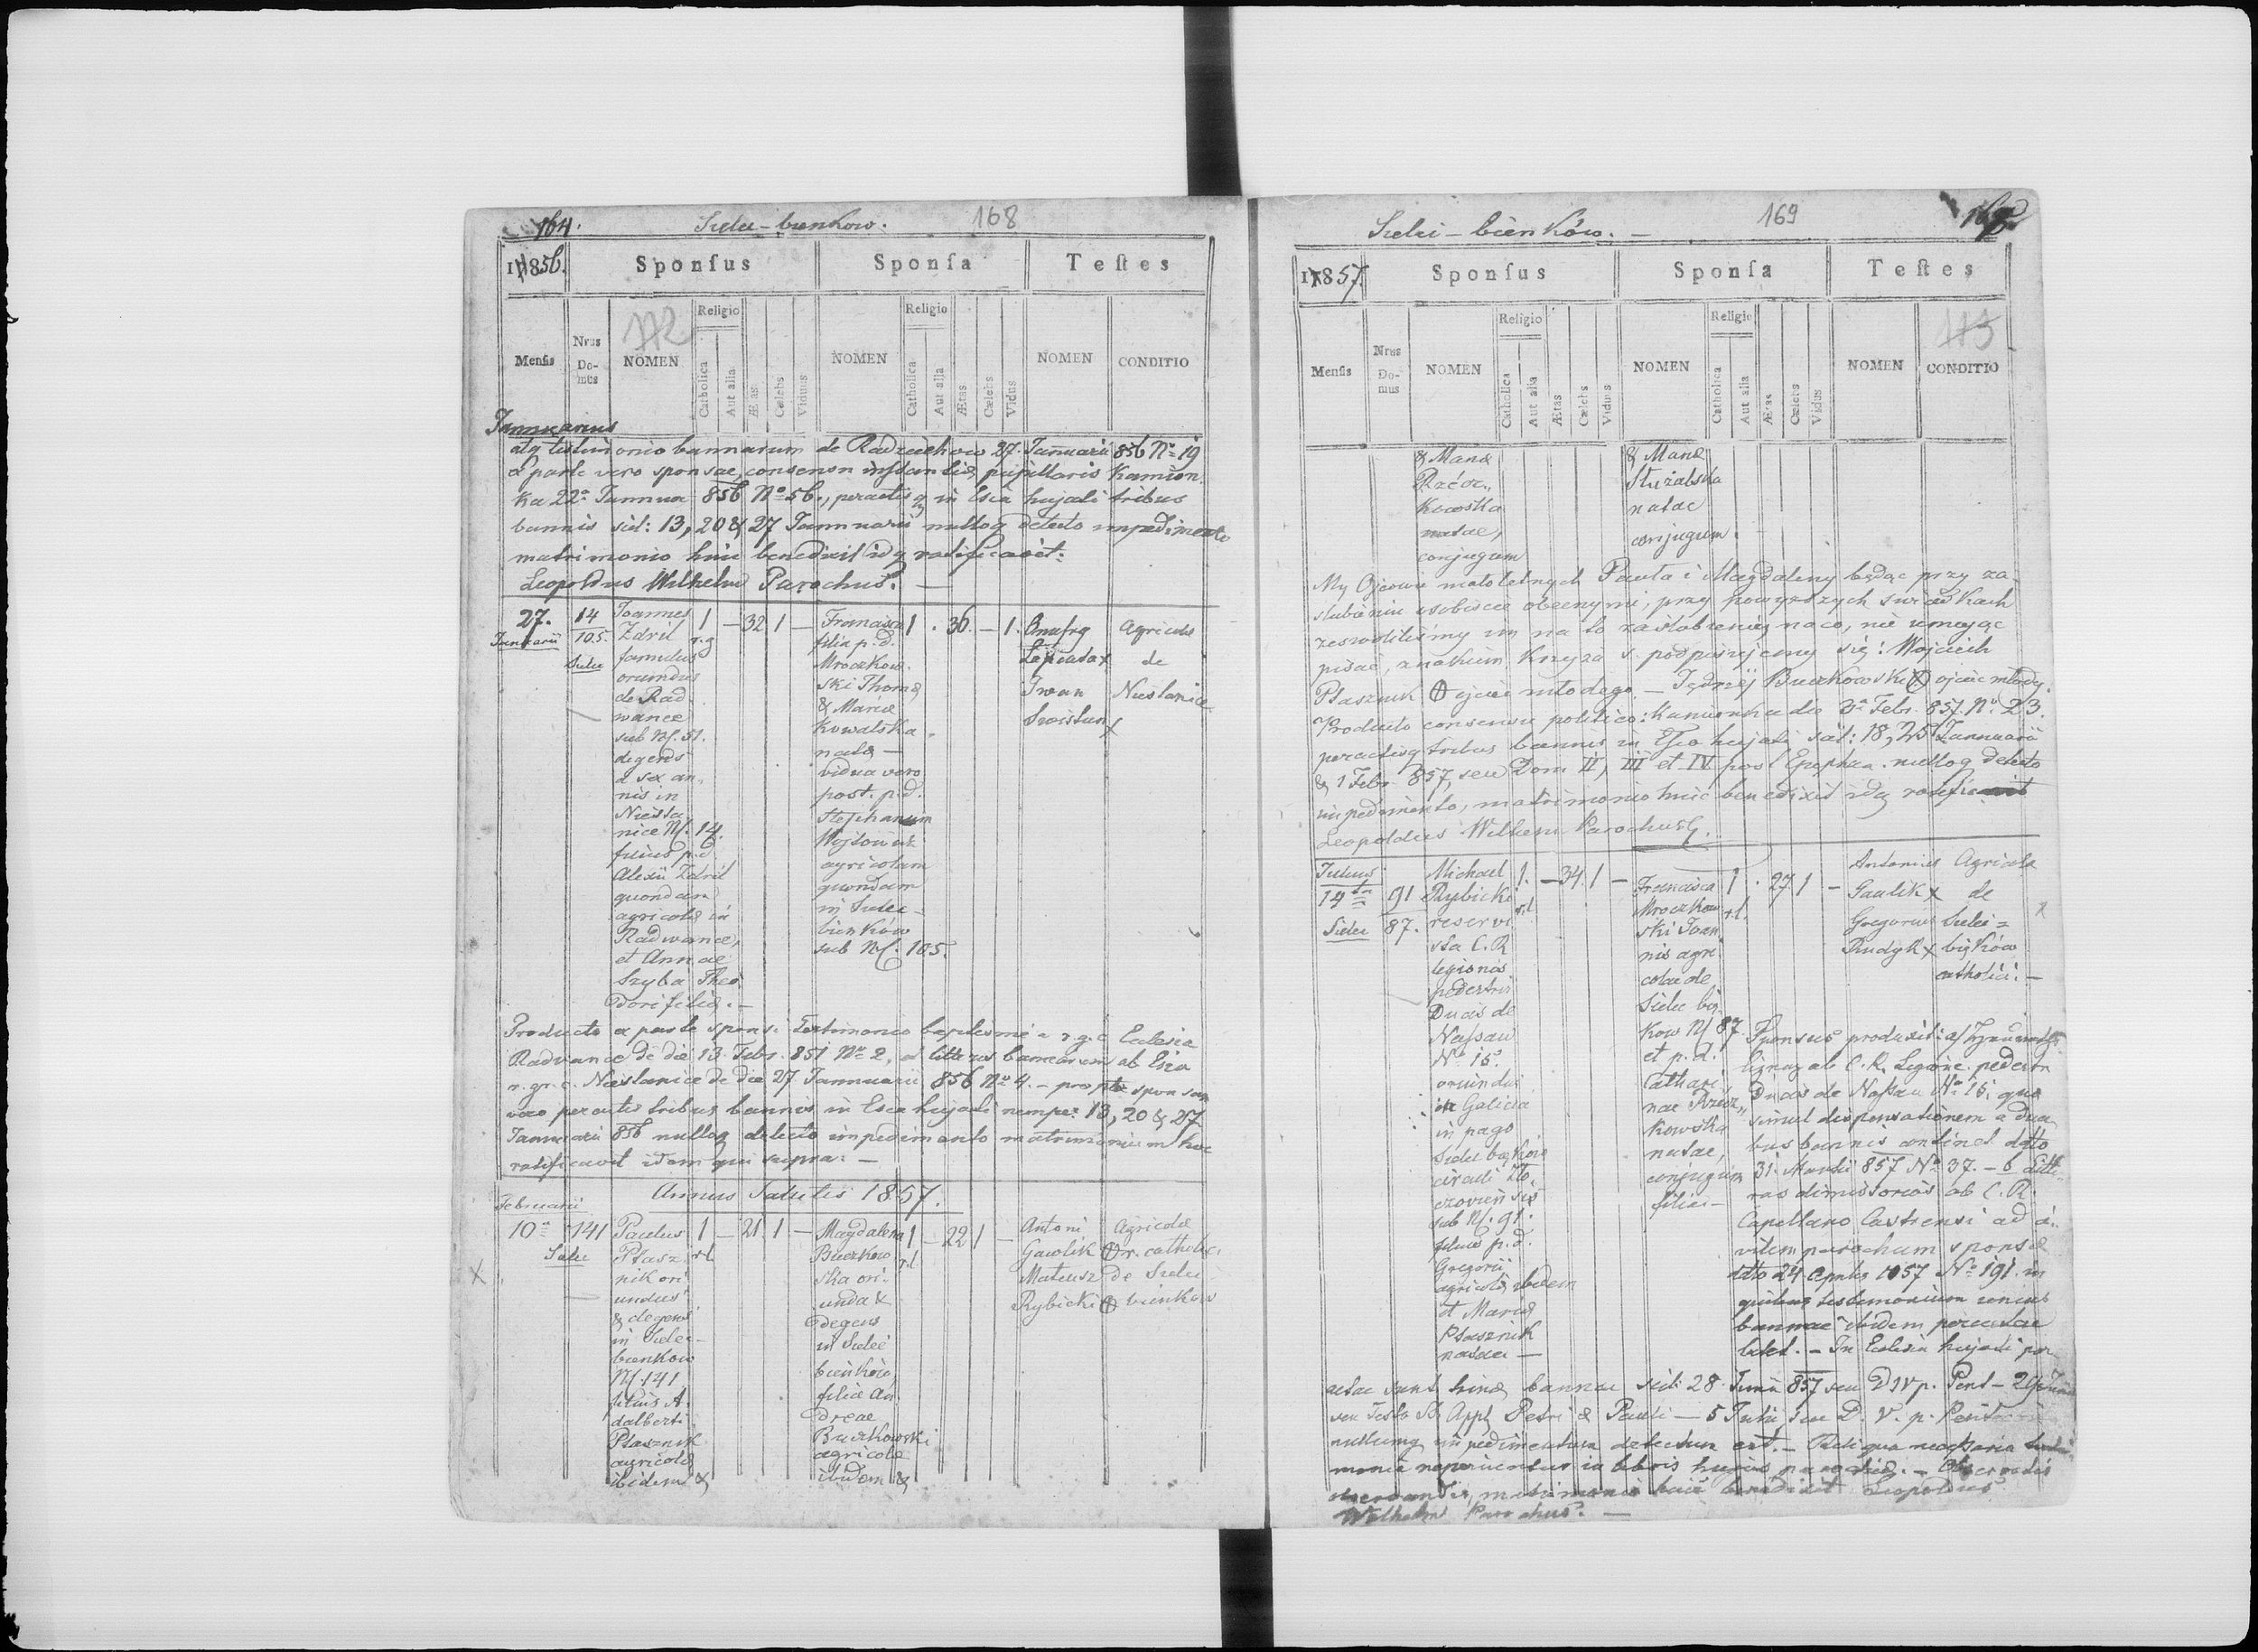 164.
Sielec-bienkow.
168
1856.
Sponſus
Sponſa
Teſtes
Menſis
Nrus Domus
112
NOMEN
Religio
Catholica
Aut alia
Ætas
Cælebs
Viduus
NOMEN
Religio
Catholica
Aut alia
Ætas
Cælebs
Vidus
NOMEN
CONDITIO
Januarius
atq testimonio bannarum de Radziechow 27. Januarii 856 No 19
a parte vero sponsae, consensu instantiae pupillaris Kamion
ka 22a Januar 856 No 56., peractis q in Ecia hujati tribus
bannis scil: 13, 20 & 27 Januarii nulloq detecto impedimento
matrimonio huic benedixit idq ratificavit.
Leopoldus Wilhelm Parochus. —
27.
Januarii
14
105.
Sielec
Joannes
Zdril
famulus
oriundus
de Rad
wance
sub Nf. 51.
degens
a sex an
nis in
Niesta
nice Nf. 14.
filius p.d.
Alexii Zdril
quondam
agricola in
Radwance,
et Annae
Szyba Theo
dori filia. —
r.g
1 — 32 1 —
Francisca
filia p. d.
Mroczkow
ski Thoma
& Maria
Kowalska
nata —
vidua vero
post. p.d.
Stephanum
Wojtowicz
agricolam
quondam
in Sielec
bienków
sub Nf. 105.
1 . 36. — 1.
Onufry
x
Iwan
x
Agricola
de
Niestanice
Producto a parte sponsi Testimonio baptismi a r.g.c Ecclesia
Radwance de die 13. Febr. 851 No 2, et litteris bannorum ab Ecia
r. gr. c. Niestanice de die 27 Januarii 856 No 4. — pro pte sponsae
vero peractis tribus bannis in Ecia hujati nempe: 13, 20 & 27
Januarii 856 nulloq detecto impedimento matrimonium hoc
ratificavit idem qui supra. —
Annus Salutis 1857.
Februarii
10a
141
Sielec
Paulus
Ptasz
nik ori
undus
& degens
in Sielec
bienkow
Nf 141
filius A
dalberti
Ptasznik
agricola
ibidem &
r.l
1 — 21. 1 —
Magdalena
Buczkow
ska ori
unda &
degens
in Sielec
bienków
filia An
dreae
Buczkowski
agricola
ibidem &
r.l
1 — 22 1 —
Antoni
Gawlik
Mateusz
Rybicki
Agricola
r. catholic
de Sielec
bienkow
Sielec-bienków. —
169
1857.
Sponſus
Sponſa
Teſtes
Menſis
Nrus Domus
NOMEN
Religio
Catholica
Aut alia
Ætas
Cælebs
Viduus
NOMEN
Religio
Catholica
Aut alia
Ætas
Cælebs
Vidus
NOMEN
113
CONDITIO
& Maria
kowska
natae,
conjugum
& Maria
natae
conjugum
My Ojcowie małoletnych Pawła i Magdaleny będąc przy za
ślubieniu osobiście obecnymi, przy powyższych świadkach
zezwoliliśmy im na to zaślubienie, na co, nie umiejąc
pisać, znakiem krzyża s. podpisujemy się: Wojciech
Ptasznik ojciec młodego — Jędrzej Buczkowski ojciec młody.
Producto consensu politico: Kamionka de 3a Febr. 857. No 23.
peractisq tribus bannis in Ecia hujati scil: 18, 25 Januarii
& 1 Febr 857, seu Dom II, III et IV post Epiphan. nulloq detecto
impedimento, matrimonio huic benedixit idq ratificavit
Leopoldus Wilhelm Parochus.
Julius
14ta
Sielec
91
87.
Michael
Rybicki
reservi
sta C. R
legionis
pedestris
Ducis de
Nassau
No 15.
oriundus
in Galicia
in pago
Sielec bienków
circuli Zlo
czoviensis
sub Nf. 91.
filius p. d.
Gregorii
agricola ibidem
et Maria
Ptasznik
natae —
r.l
1. — 34. 1 —
Francisca
Mroczkow
ski Joan
nis agri
colae de
Sielec bien
kow Nf 87.
et p. d.
Cathari
nae
kowska
natae,
conjugum
filia —
r.l.
1 . 27 1 —
Antonius
Gaulik x
Gregorius
Rudyk x
Agricola
de
Sielec
bieków
catholici. —
Sponsus produxit: a/
ab C. R. Legione pedestri
Ducis de Nassau No 15. quo
simul dispensationem a dua
bus bannis continet ddto
31. Martii 857 No 37. — b Litte
ras dimissorias ab C. R.
Capellano Castrensi ad ci
vilem parochum sponsae
ddto 24 Aprilis 1857 No 191. in
quibus testimonium unicae
bannae ibidem peractae
latet. — In Ecclesia hujati per
actae sunt binae bannae scil: 28. Junii 857 seu D IV p. Pent — 29 Junii
seu Festo SS. Appl Petri & Pauli — 5 Julii seu D. V. p. Pent
nullumq impedimentum detectum est. — Reliqua necessaria
reperiuntur in libris hujus parochiae. — Observatis
observandis, matrimonio huic benedixit Leopoldus
Wilhelm Parochus. —